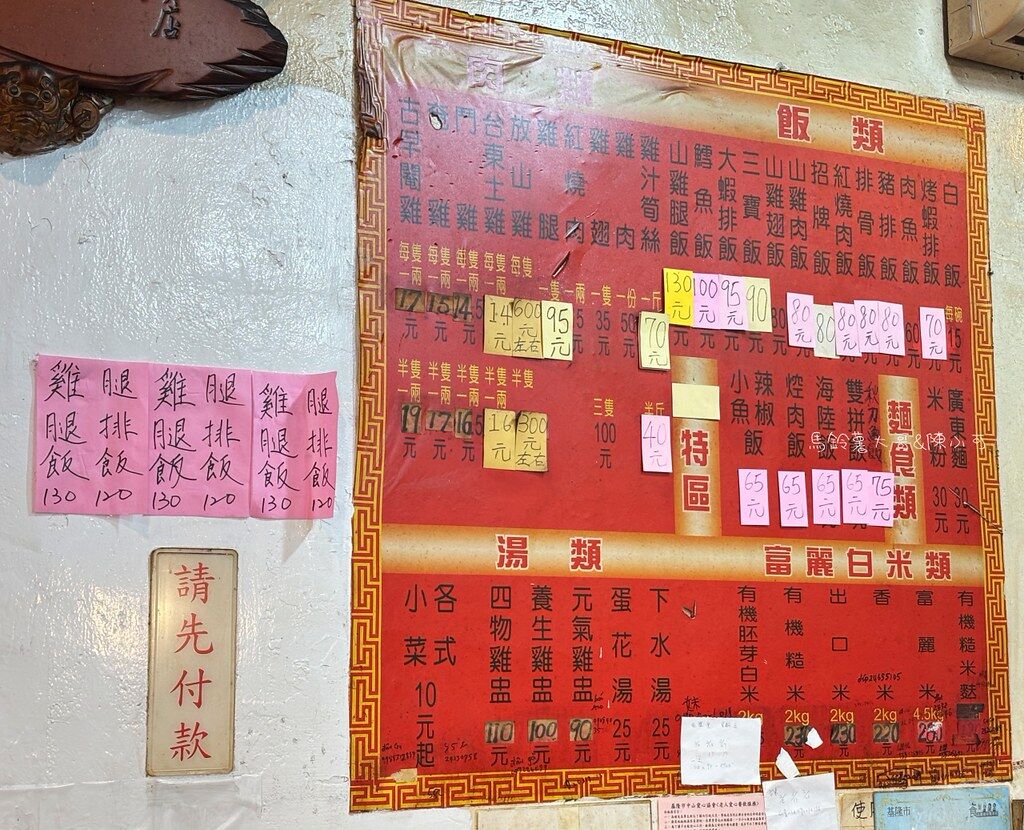 店
肉類
古早閹雞
每隻
一兩
17元
半隻
一兩
19元
雞
每隻
一兩
15元
半隻
一兩
17元
門
雞
每隻
一兩
14.5元
半隻
一兩
16.5元
台東土雞
每隻
一兩
14元
半隻
一兩
16元
放山雞
每隻
600元
左右
半隻
300元
左右
雞腿
一隻
95元
紅燒肉
一兩
雞翅
一隻
35元
三隻
100元
雞肉
一份
50
雞汁筍絲
一斤
70元
半斤
40元
飯類
山雞腿飯
130元
鱈魚飯
100元
大蝦排飯
95元
三寶飯
90
山雞翅飯
山雞肉飯
80元
招牌飯
80
紅燒肉飯
80元
排骨飯
80元
豬排飯
80元
肉魚飯
60元
烤蝦排飯
70元
白飯
每碗
15元
特區
小魚飯
65元
辣椒飯
65元
焢肉飯
65元
海陸飯
65元
雙拼飯
75元
麵食類
米粉
30元
廣東麵
30元
湯類
小菜10元起
各式
四物雞盅
110元
養生雞盅
100元
元氣雞盅
90元
蛋花湯
25元
下水湯
25元
富麗白米類
有機胚芽白米
2kg
有機糙米
2kg
230元
出口米
2kg
230元
香米
2kg
220元
富麗米
4.5kg
有機糙米麩
雞腿飯
130
腿排飯
120
雞腿飯
130
腿排飯
120
雞腿飯
130
腿排飯
120
請先付款
馬鈴薯大哥&陳小布
基隆市